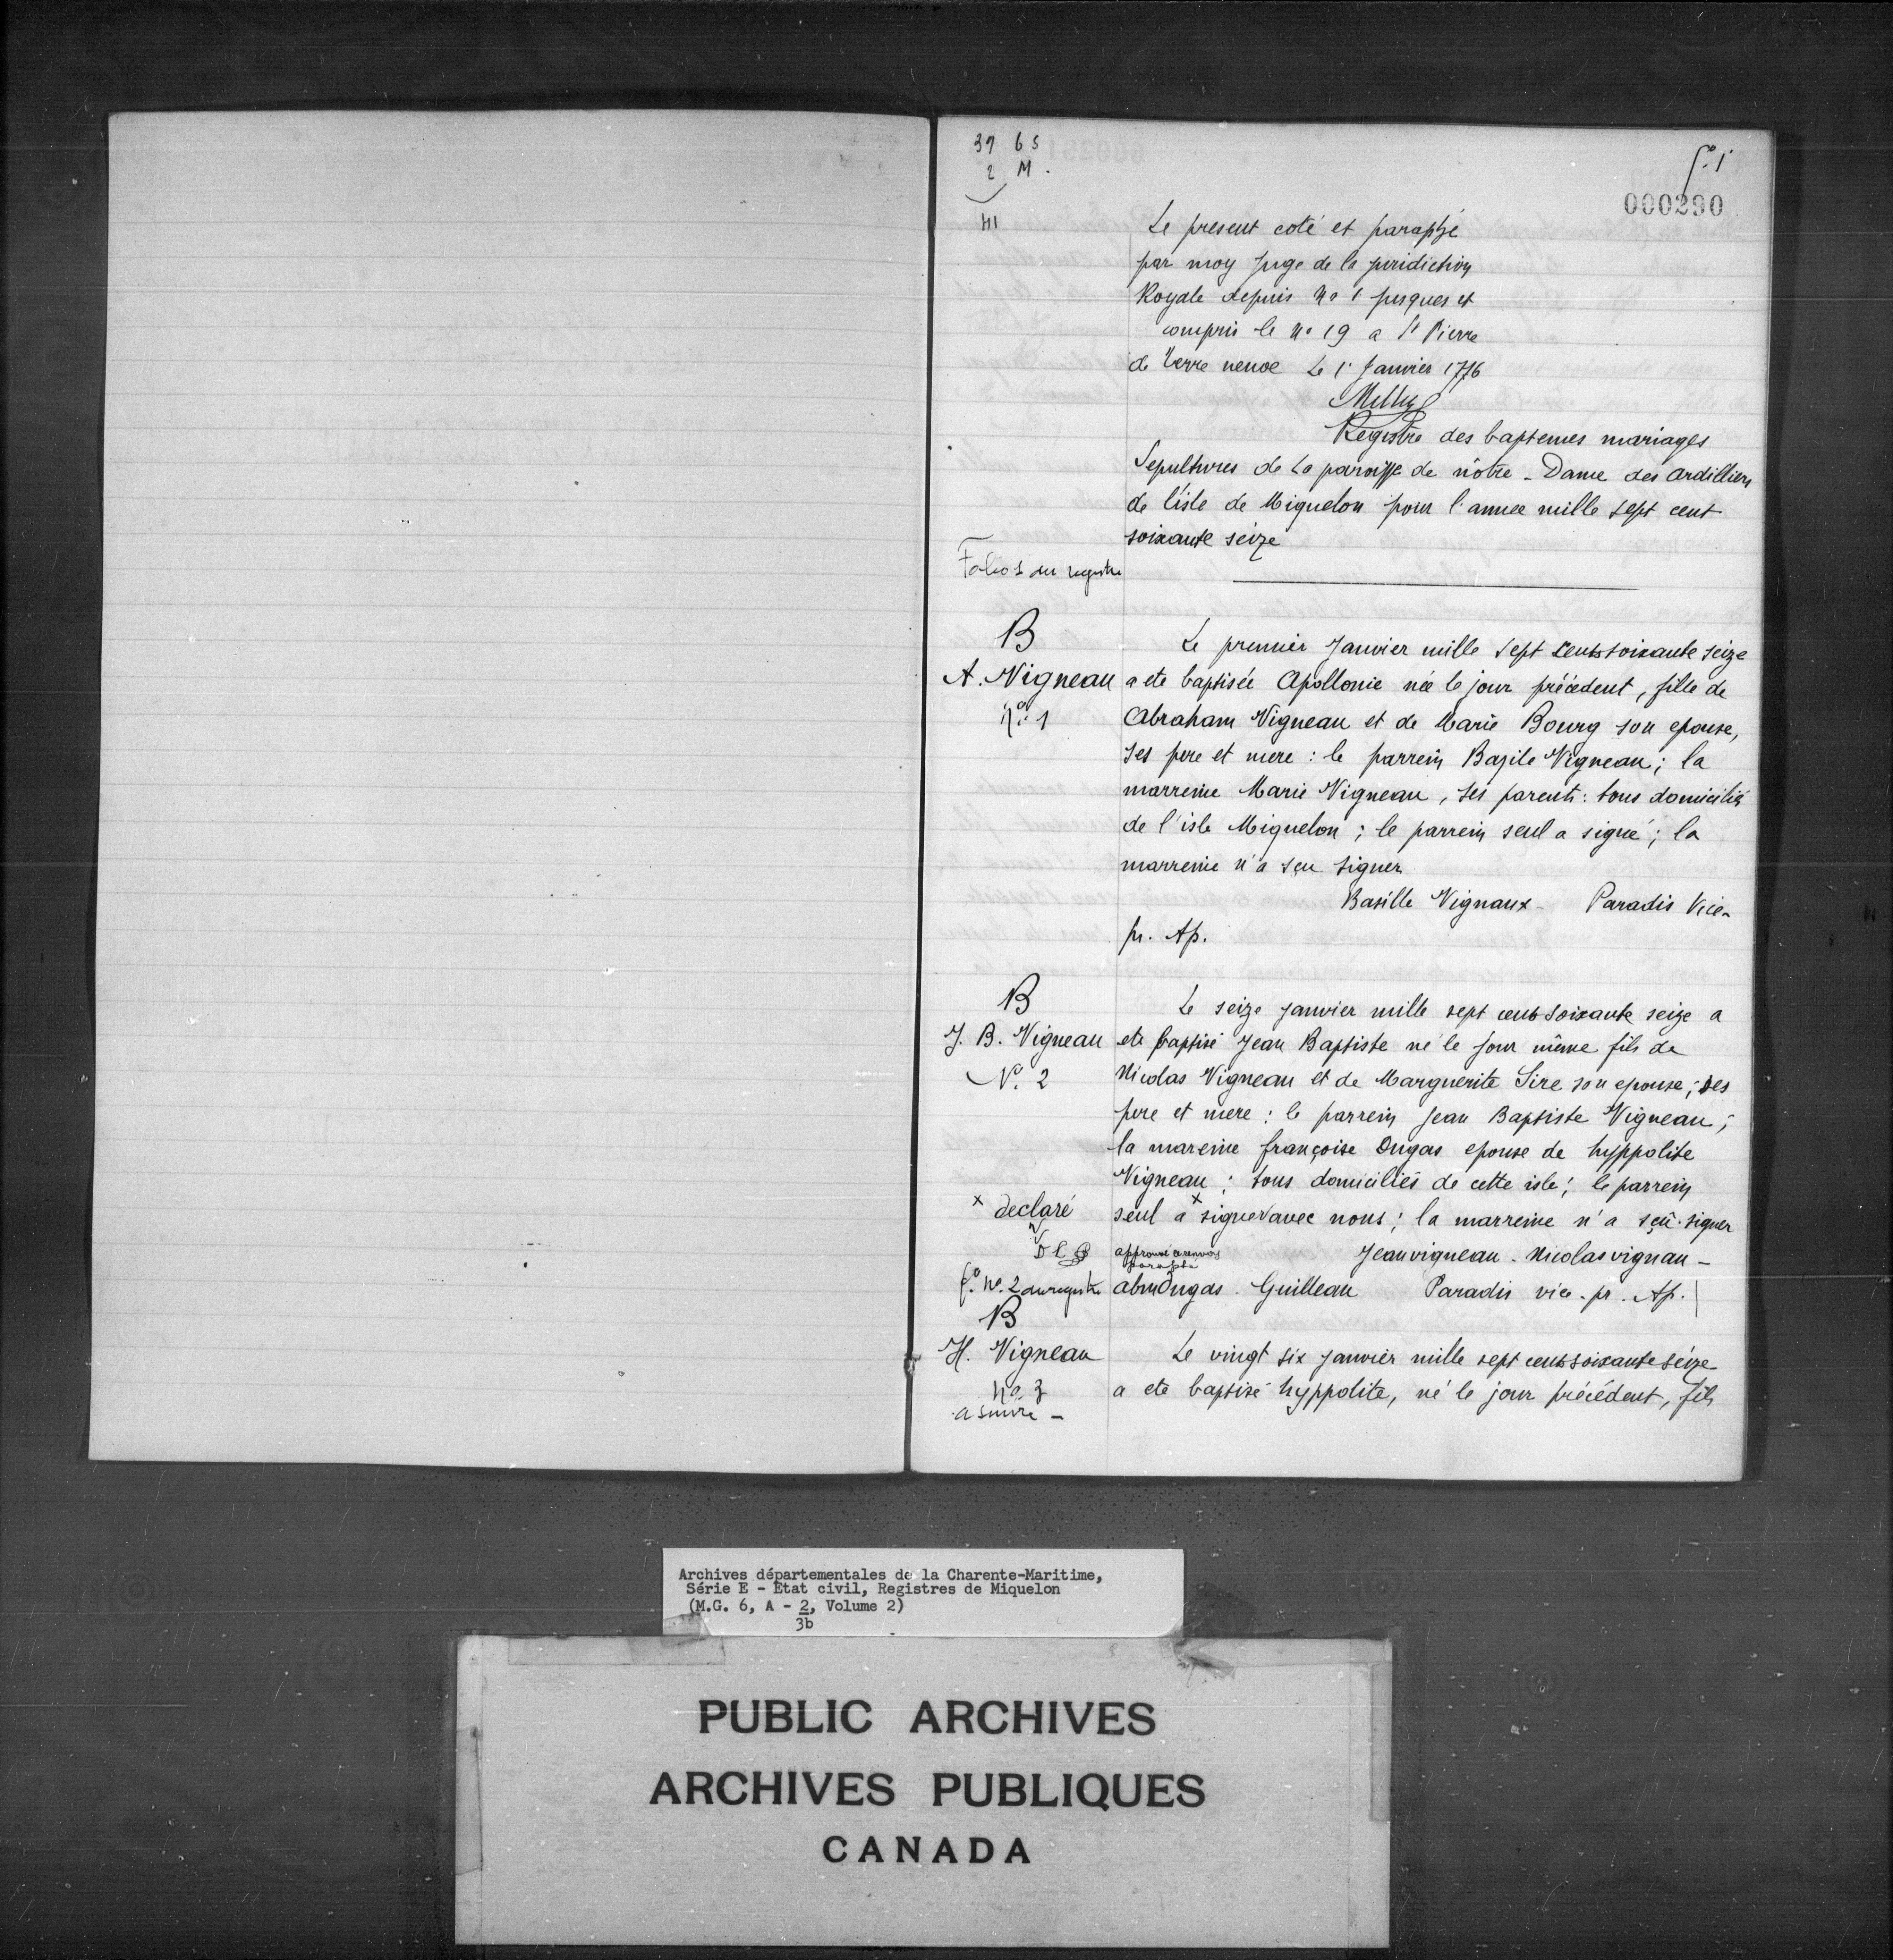 37 65
2 M.
f.º 1
000290
41
Le present coté et paraphé
par moy Juge de la juridiction
Royale depuis Nº 1 jusques et
compris le Nº 19 a St Pierre
de Terre neuve Le 1r Janvier 1776
Registre des baptemes mariages
Sepultures de La paroisse de nôtre-Dame des ardilliers
de l'isle de Miquelon pour l'annee mille sept cent
soixante seize
Folio 1 du registre
B
Le premier Janvier mille sept cents soixante seize
A. Vigneau a ete baptisée Apollonie née le jour précedent, fille de
Nº 1 Abraham Vigneau et de Marie Bourg son epouse,
ses pere et mere : le parrein Bazile Vigneau ; la
marreine Marie Vigneau, ses parents : tous domiciliés
de l'isle Miquelon ; le parrein seul a signé ; la
marreine n'a sçu signer
Basille Vignaux - Paradis Vice-
pr. Ap.
B
Le seize janvier mille sept cent soixante seize a
J. B. Vigneau ete baptisé Jean Baptiste né le jour même fils de
Nº. 2 Nicolas Vigneau et de Marguerite Sire son epouse ; ses
pere et mere : le parrein Jean Baptiste Vigneau ;
la mareine françoise Dugas epouse de hyppolite
Vigneau ; tous domiciliés de cette isle ; le parrein
x declaré seul a x signer avec nous ; la marreine n'a sçû signer
D l B approuvé paraphé Jeanvigneau - Nicolasvignau -
fº. Nº. 2 du registre abmDugas . Guilleau Paradis vice. pr. Ap.
B
H. Vigneau Le vingt six janvier mille sept cent soixante seize
Nº 3 a ete baptisé hyppolite, né le jour précédent, fils
a suivre -
Archives départementales de la Charente-Maritime,
Série E - Etat civil, Registres de Miquelon
(M.G. 6, A - 2, Volume 2)
3b
PUBLIC ARCHIVES
ARCHIVES PUBLIQUES
CANADA